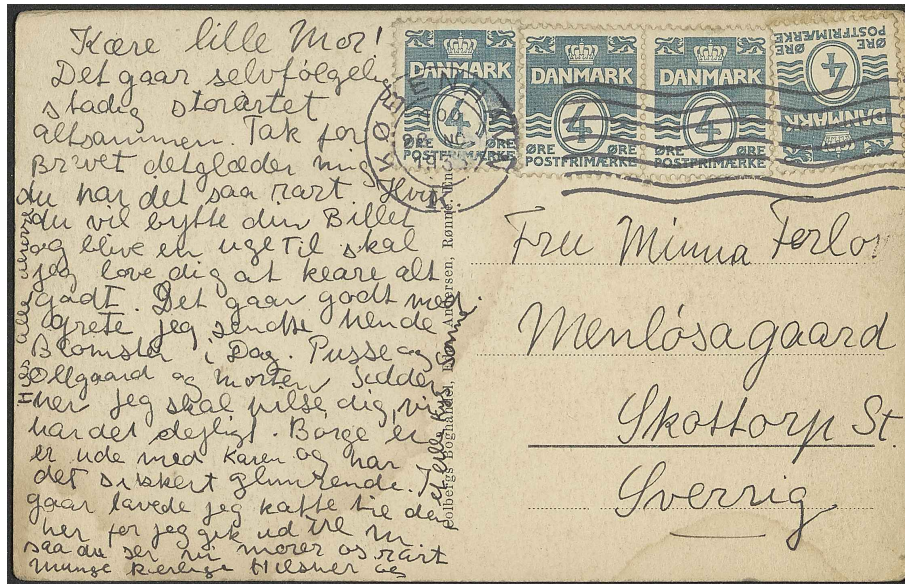 Kære lille Mor!
Det gaar selvfölgelig
stadig storartet
altsammen. Tak for
Brevet detglæder mig
du har det saa rart. Hvis
du vil bytte din Billet
og blive en uge Til skal
jeg love dig at klare alt
godt. Det gaar godt med
Grete jeg sendte hende
Blomster i Dag. Pusse og
Ollgaard og Morten sidder
her jeg skal hilse dig, vi
har det dejligt. Börge er
er ude med Karen og har
det sikkert glimrende. I
gaar lavede jeg kaffe til dem
her før jeg gik ud til
saa du ser vi morer os rart
Mange kærlige Hilsner og
Hils alle
DANMARK
4
ØRE ØRE
POSTFRIMÆRKE
DANMARK
4
ØRE ØRE
POSTFRIMÆRKE
DANMARK
4
ØRE ØRE
POSTFRIMÆRKE
DANMARK
4
ØRE ØRE
POSTFRIMÆRKE
K
Colbergs Boghandel, Andersen, Rønne.
Fru Minna
Menlösagaard
Skottorp St.
Sverrig